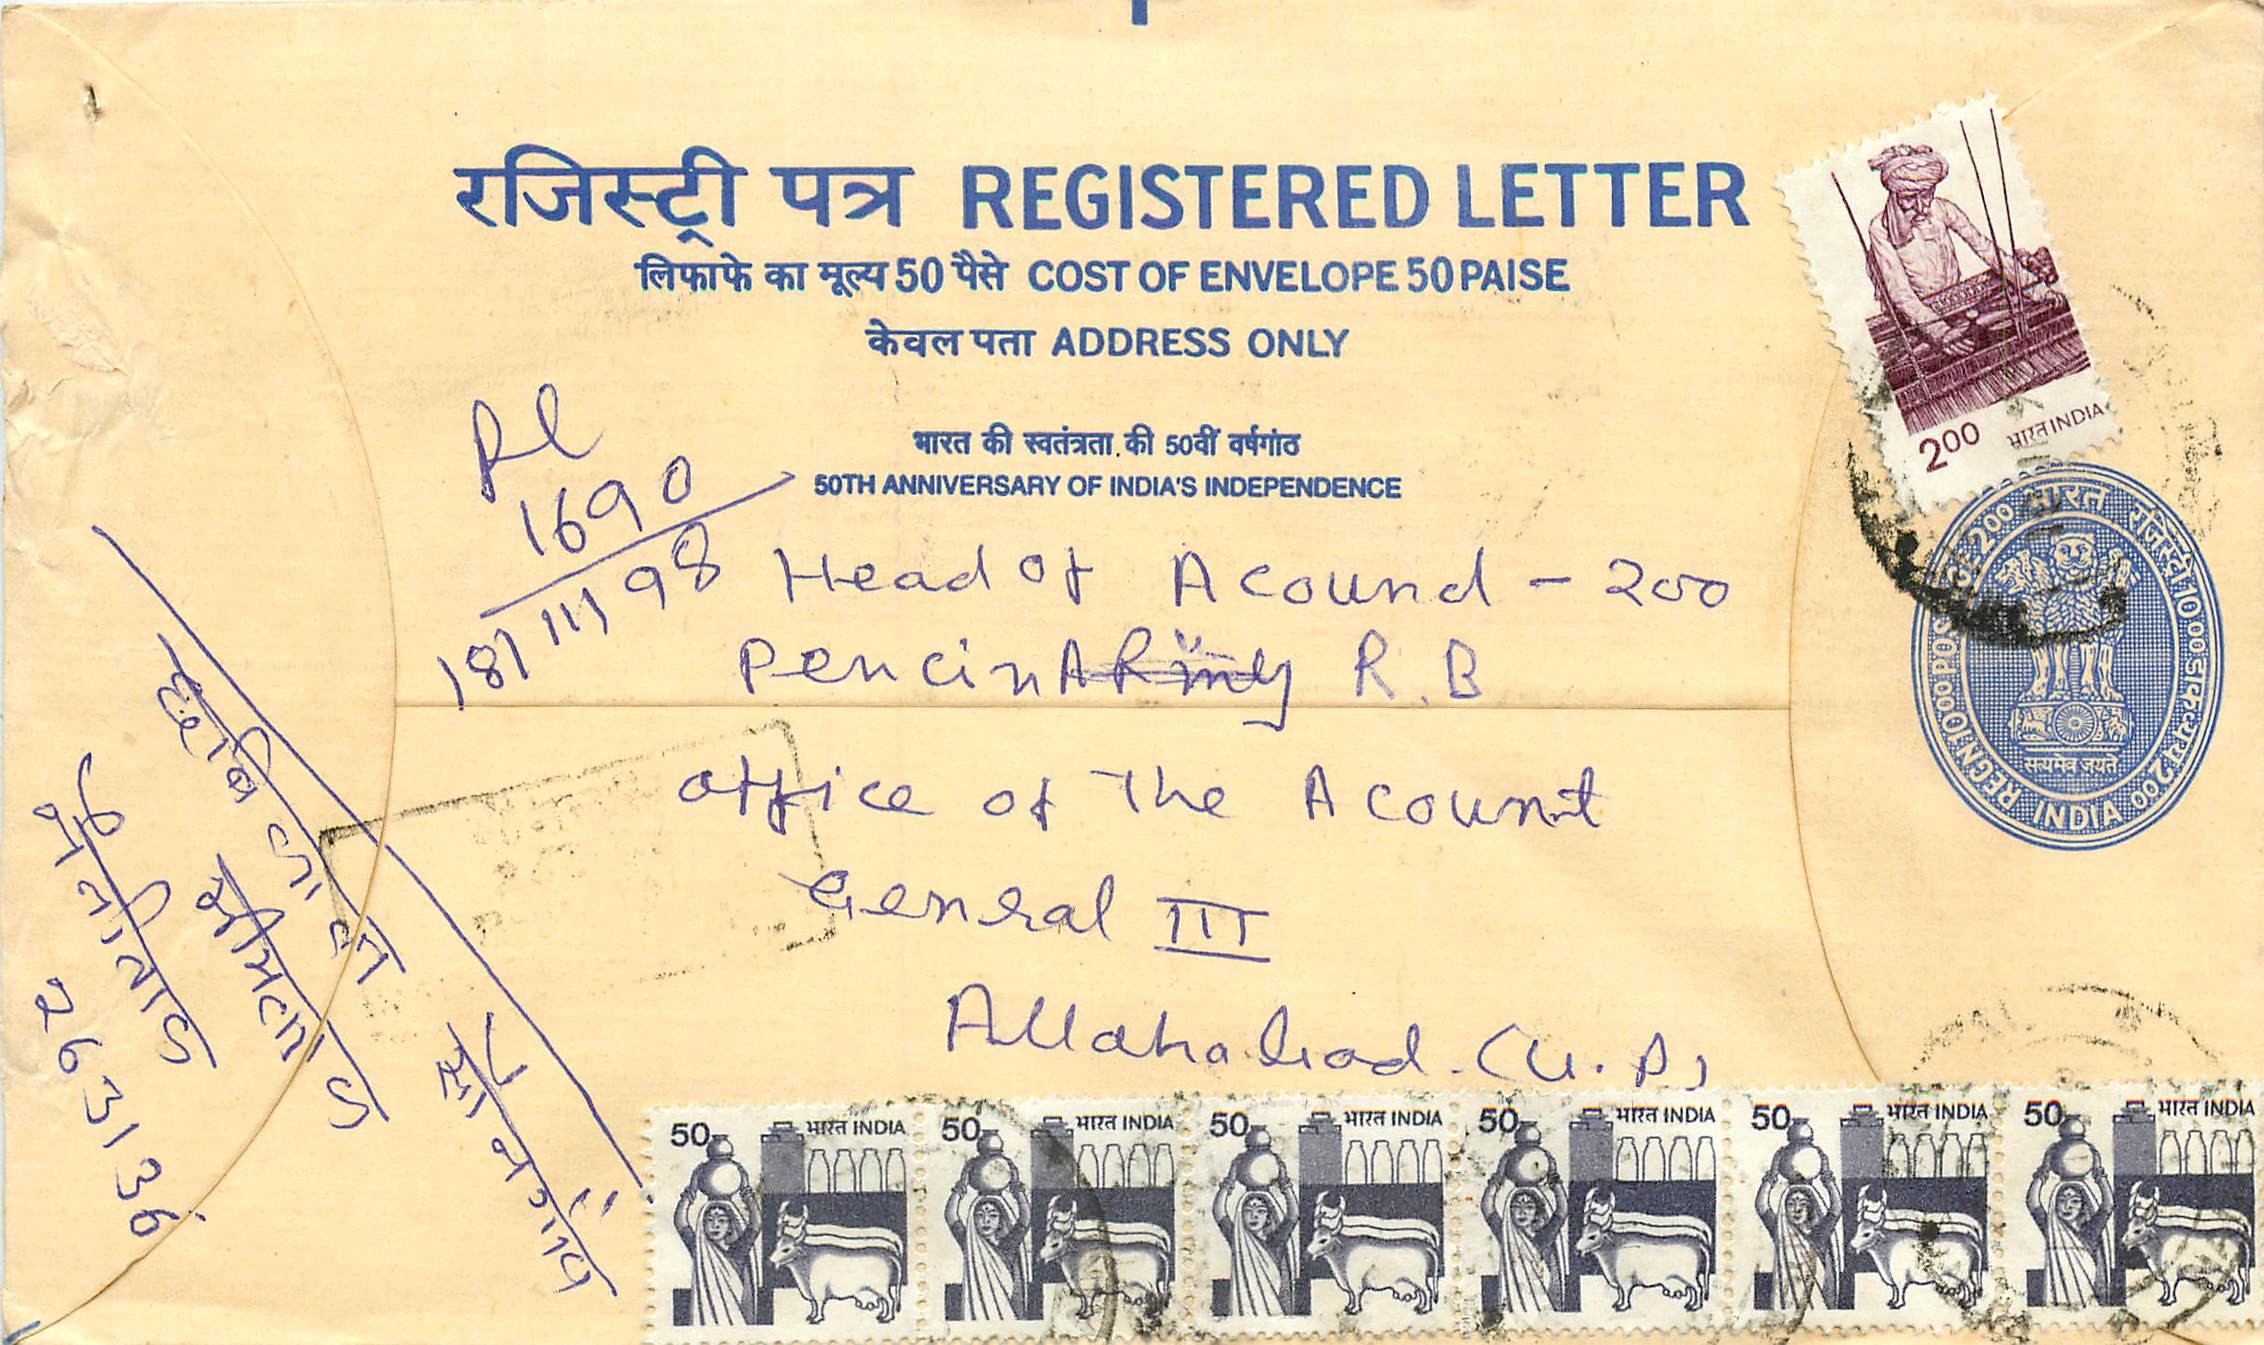 रजिस्ट्री पत्र REGISTERED LETTER
लिफाफे का मूल्य 50 पैसे COST OF ENVELOPE 50 PAISE
केवल पता ADDRESS ONLY
भारत की स्वतंत्रता की 50वीं वर्षगांठ
50TH ANNIVERSARY OF INDIA'S INDEPENDENCE
200 भारत INDIA
भारत रजिस्ट्री 1000 डाक POSTAGE 200
REGN 1000
INDIA
सत्यमेव जयते
Rl
1690
18/11/98
Head of Acound - 200
Pencin R.B
Office of the Acount
General III
Allahabad. (U.P)
263136
50 भारत INDIA
50 भारत INDIA
50 भारत INDIA
50 भारत INDIA
50 भारत INDIA
50 भारत INDIA